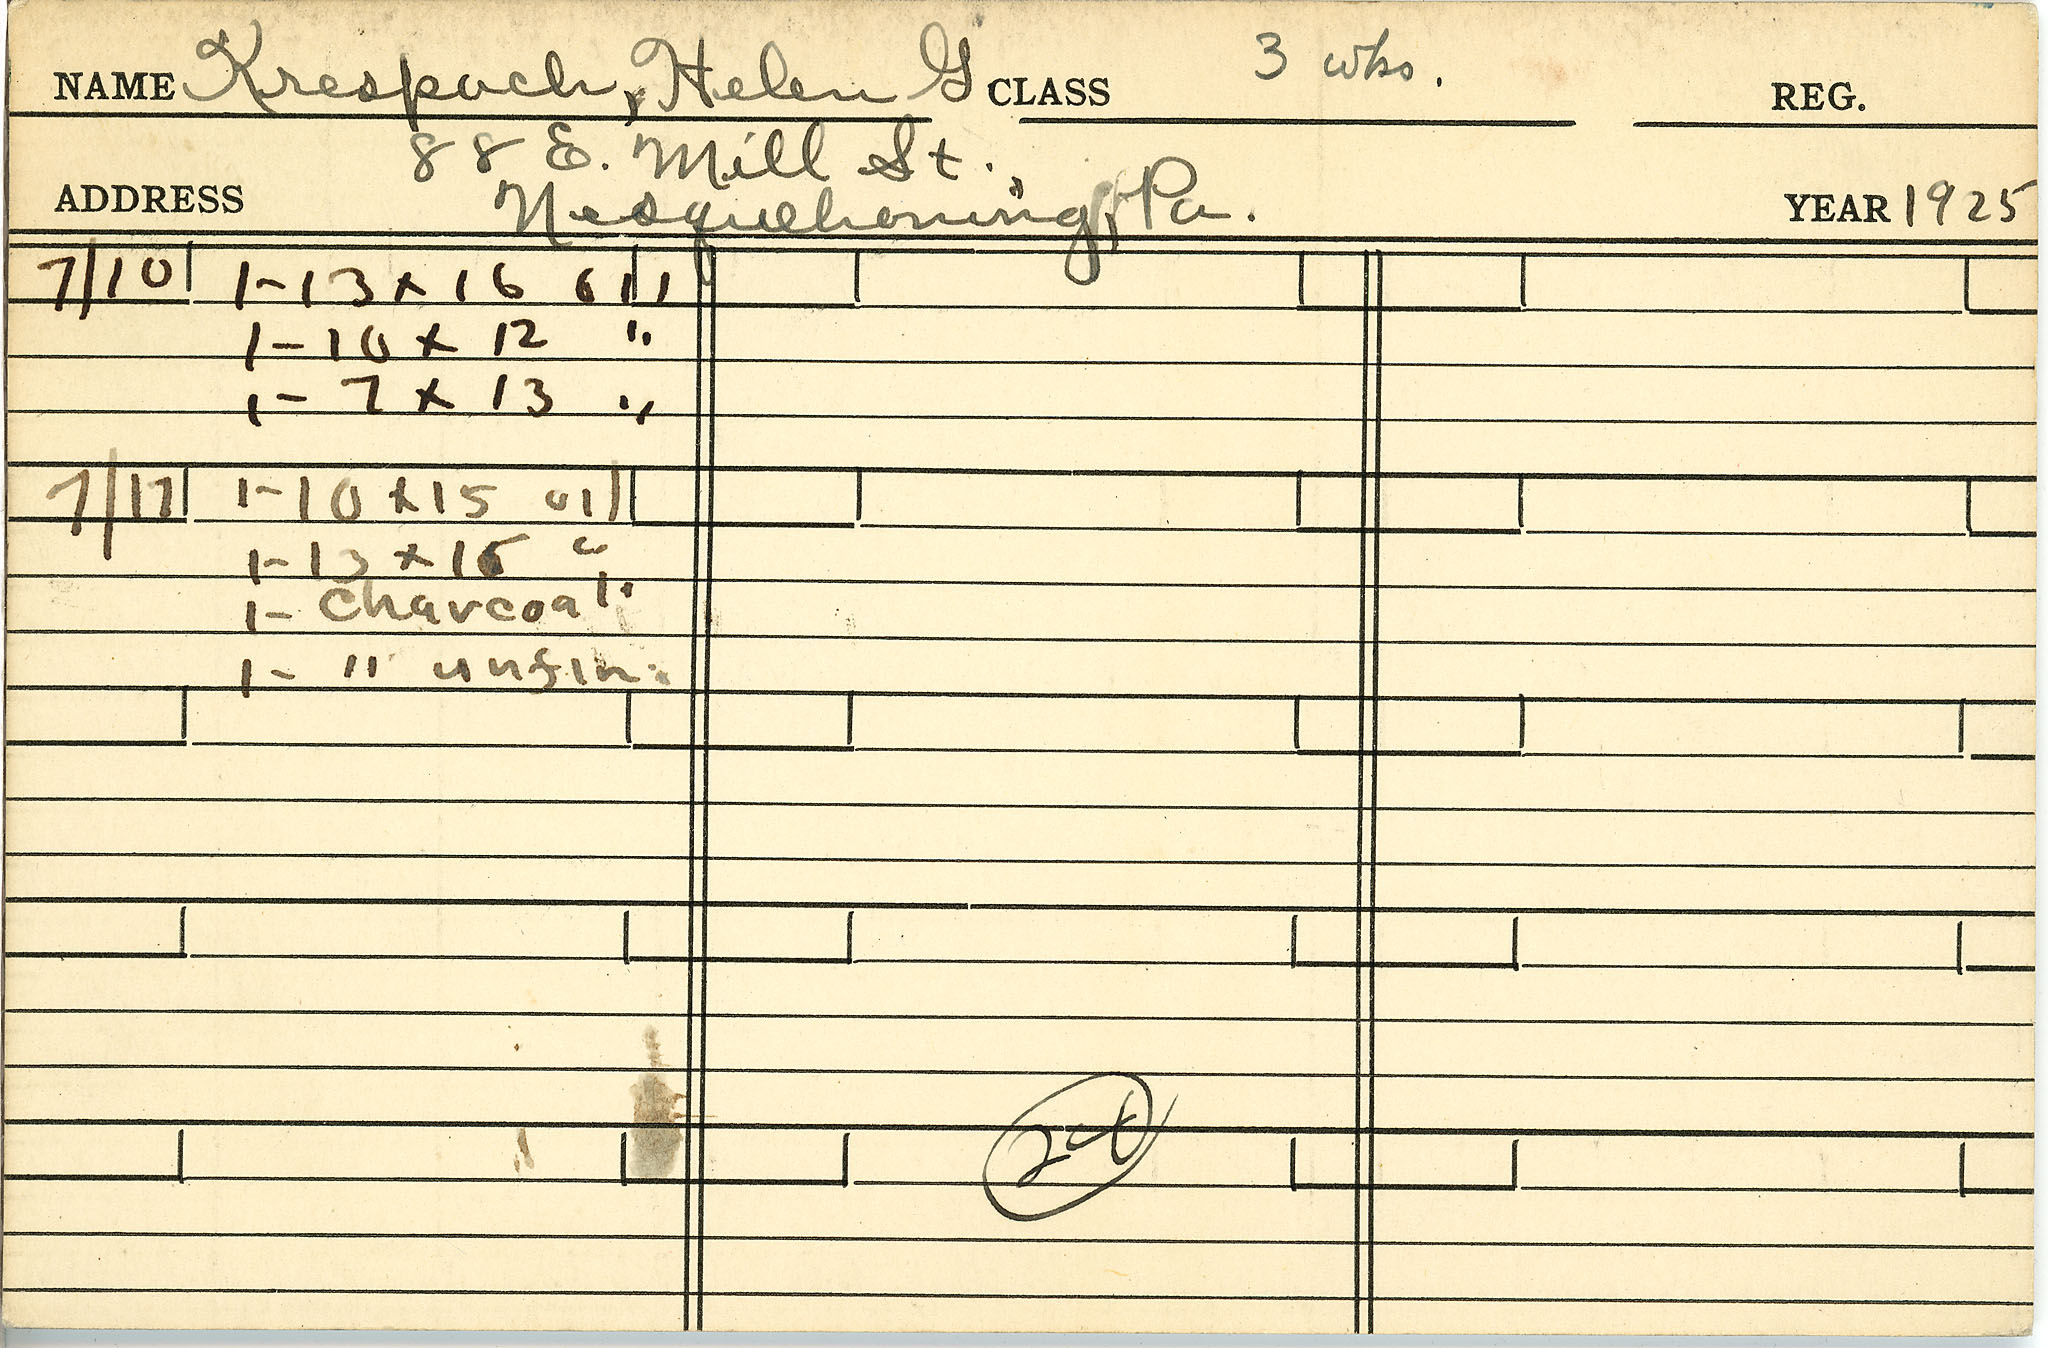 NAME Krespach, Helen G CLASS 3 wks. REG.
88 E. Mill St.,
ADDRESS Nesquehoning, Pa. YEAR 1925
7/10 1-13 x 16 oil
1-10 x 12 "
1- 7 x 13 "
7/17 1-10 x 15 oil
1-13 x 16 "
1- Charcoal.
1- " unfin.